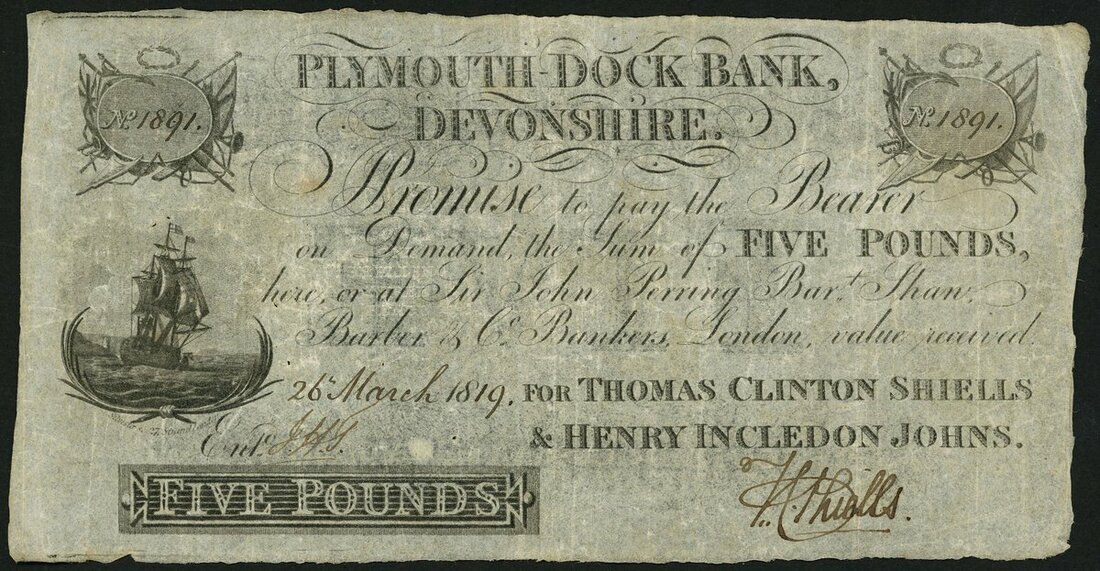 PLYMOUTH-DOCK BANK,
DEVONSHIRE.
No. 1891.
No. 1891.
I Promise to pay the Bearer
on Demand, the Sum of FIVE POUNDS,
here, or at Sir John Perring Bart. Shaw,
Barber & Co. Bankers, London, value received.
26 March 1819. FOR THOMAS CLINTON SHIELLS
& HENRY INCLEDON JOHNS.
Entd.
FIVE POUNDS
T. C. Shiells.